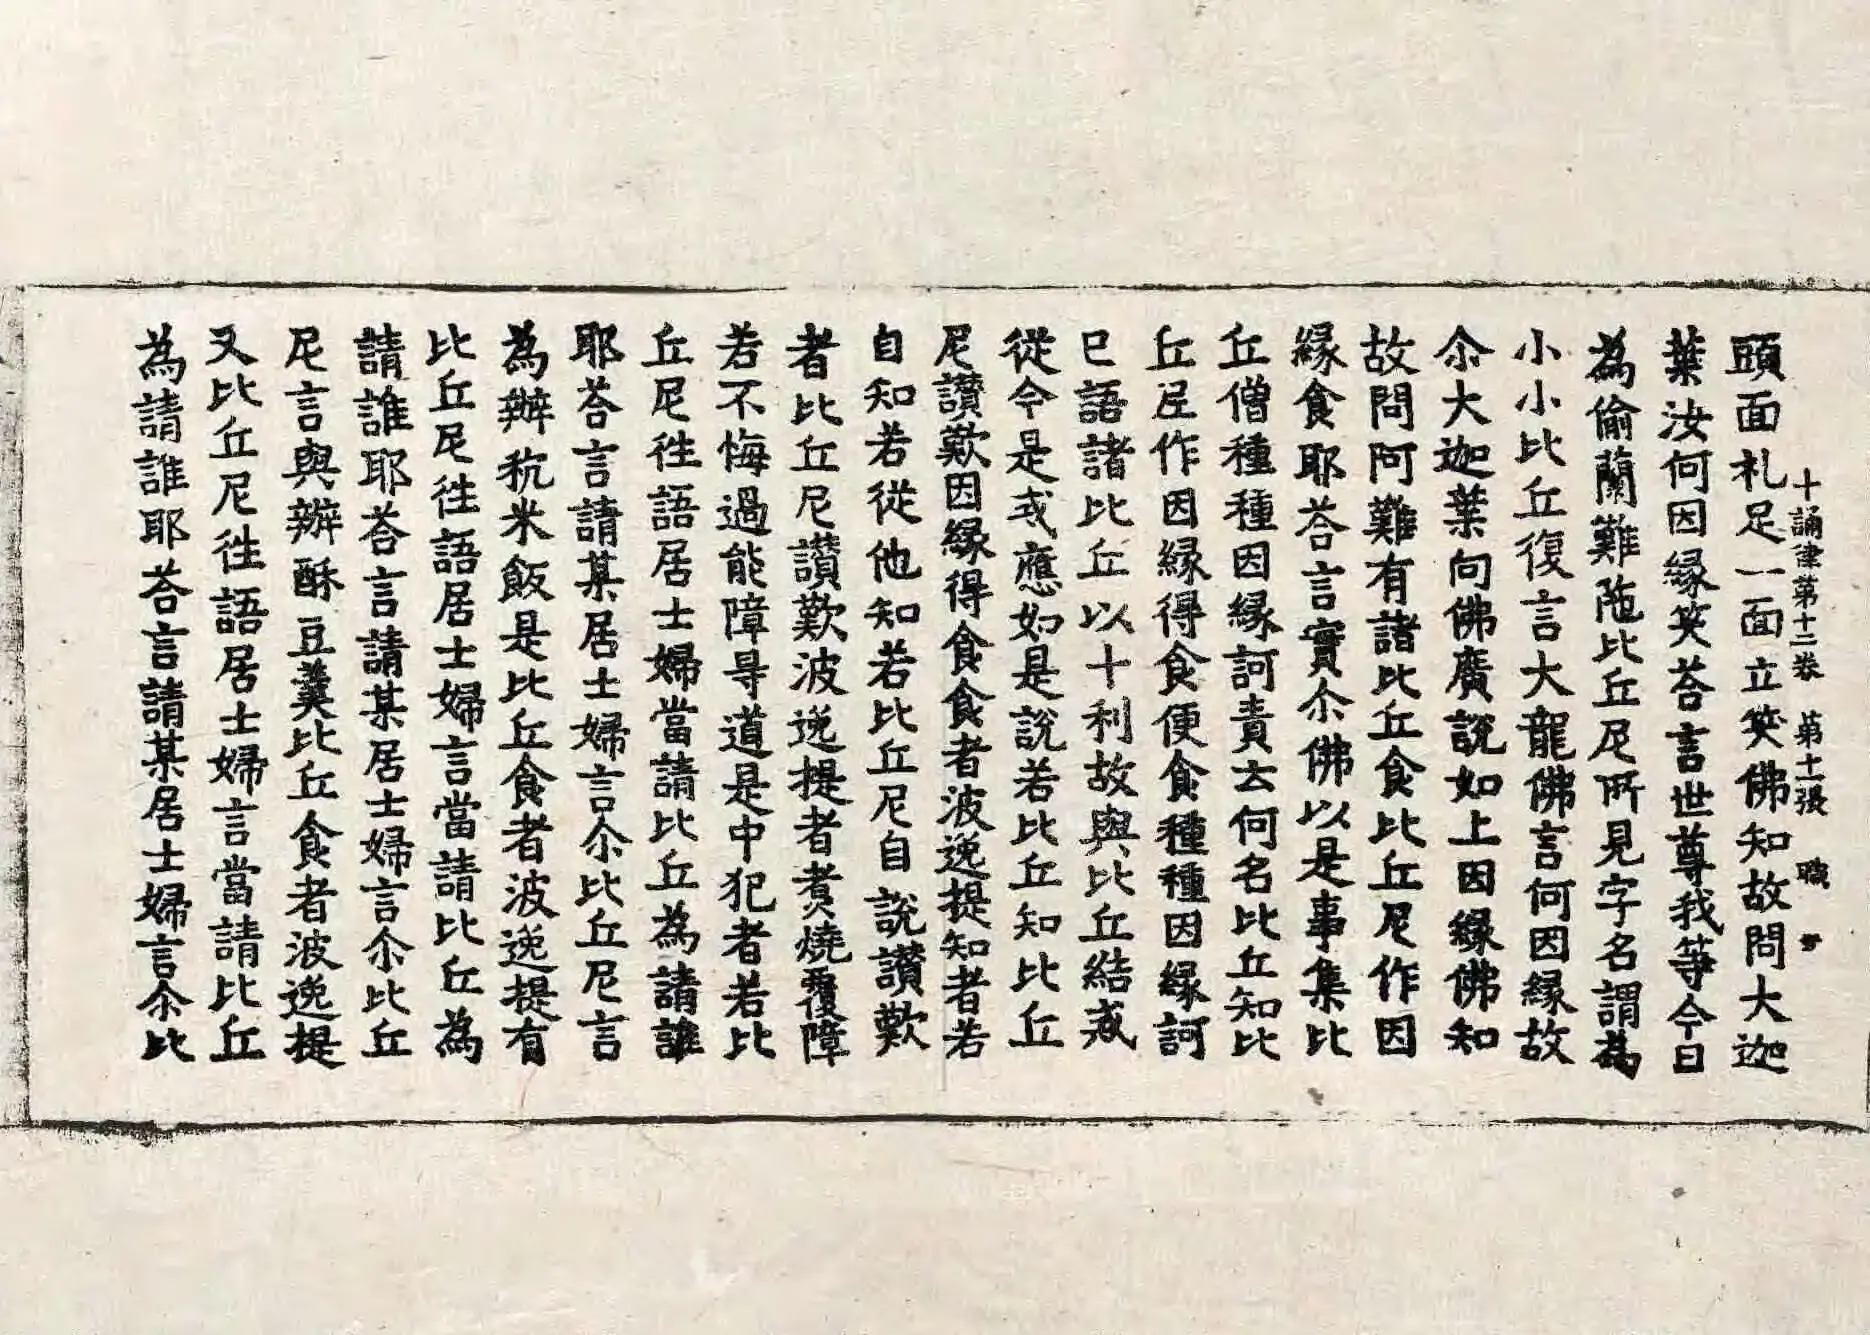 十誦律第十二卷　第十一張　職
頭面礼足一面立笑佛知故問大迦
葉汝何因縁笑荅言世尊我等今日
為偷蘭難陁比丘尼所見字名謂為
小小比丘復言大龍佛言何因縁故
尒大迦葉向佛廣說如上因縁佛知
故問阿難有諸比丘食比丘尼作因
縁食耶荅言實尒佛以是事集比
丘僧種種因縁訶責云何名比丘知比
丘尼作因縁得食便食種種因縁訶
已語諸比丘以十利故與比丘結戒
從今是戒應如是說若比丘知比丘
尼讃歎因縁得食食者波逸提知者若
自知若從他知若比丘尼自說讃歎
者比丘尼讃歎波逸提者煑燒覆障
若不悔過能障㝵道是中犯者若比
丘尼徃語居士婦當請比丘為請誰
耶荅言請某居士婦言尒比丘尼言
為辦秔米飯是比丘食者波逸提有
比丘尼徃語居士婦言當請比丘為
請誰耶荅言請某居士婦言尒比丘
尼言與辦酥豆羹比丘食者波逸提
又比丘尼徃語居士婦言當請比丘
為請誰耶荅言請某居士婦言尒比